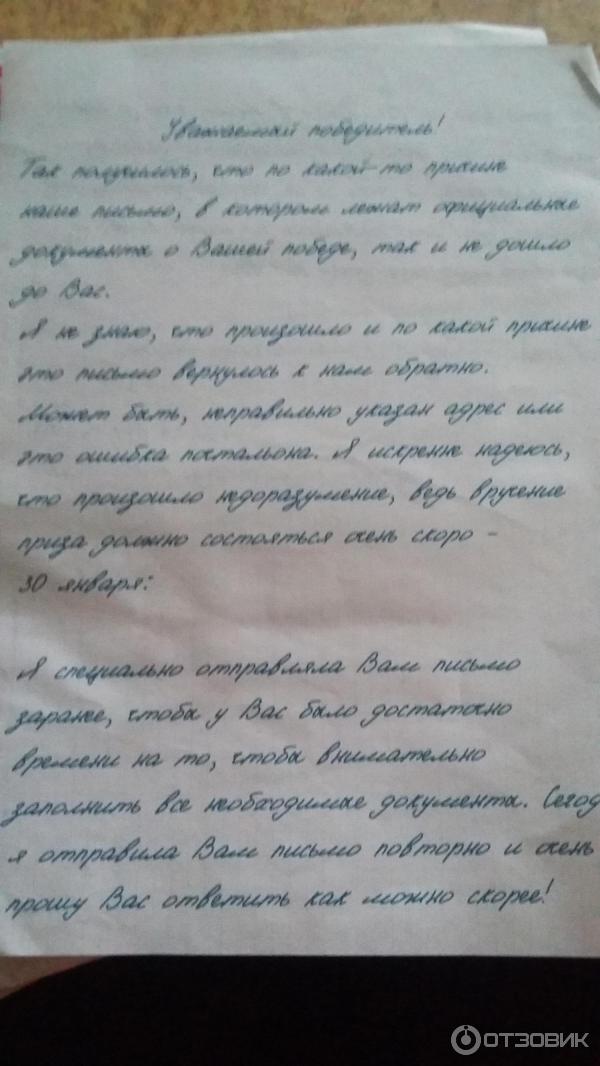 Уважаемый победитель!
Так получилось, что по какой-то причине
наше письмо, в котором лежат официальные
документы о Вашей победе, так и не дошло
до Вас.
Я не знаю, что произошло и по какой причине
это письмо вернулось к нам обратно.
Может быть, неправильно указан адрес или
это ошибка почтальона. Я искренне надеюсь,
что произошло недоразумение, ведь вручение
приза должно состояться очень скоро –
30 января:
Я специально отправляла Вам письмо
заранее, чтобы у Вас было достаточно
времени на то, чтобы внимательно
заполнить все необходимые документы. Сегод
я отправила Вам письмо повторно и очень
прошу Вас ответить как можно скорее!
ОТЗОВИК